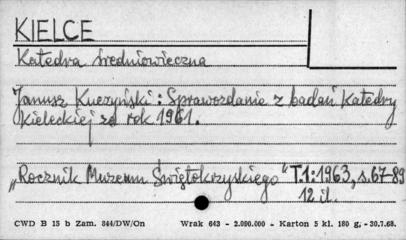 KIELCE
Katedra średniowieczna
Janusz Kuczyński: Sprawozdanie z badań Katedry
Kieleckiej za rok 1961.
„Rocznik Muzeum Świętokrzyskiego" T.1:1963, s.67-89
12 il.
CWD B 15 b Zam. 344/DW/On Wrak 643 - 2.090.000 - Karton 5 kl. 180 g, - 30.7.68.